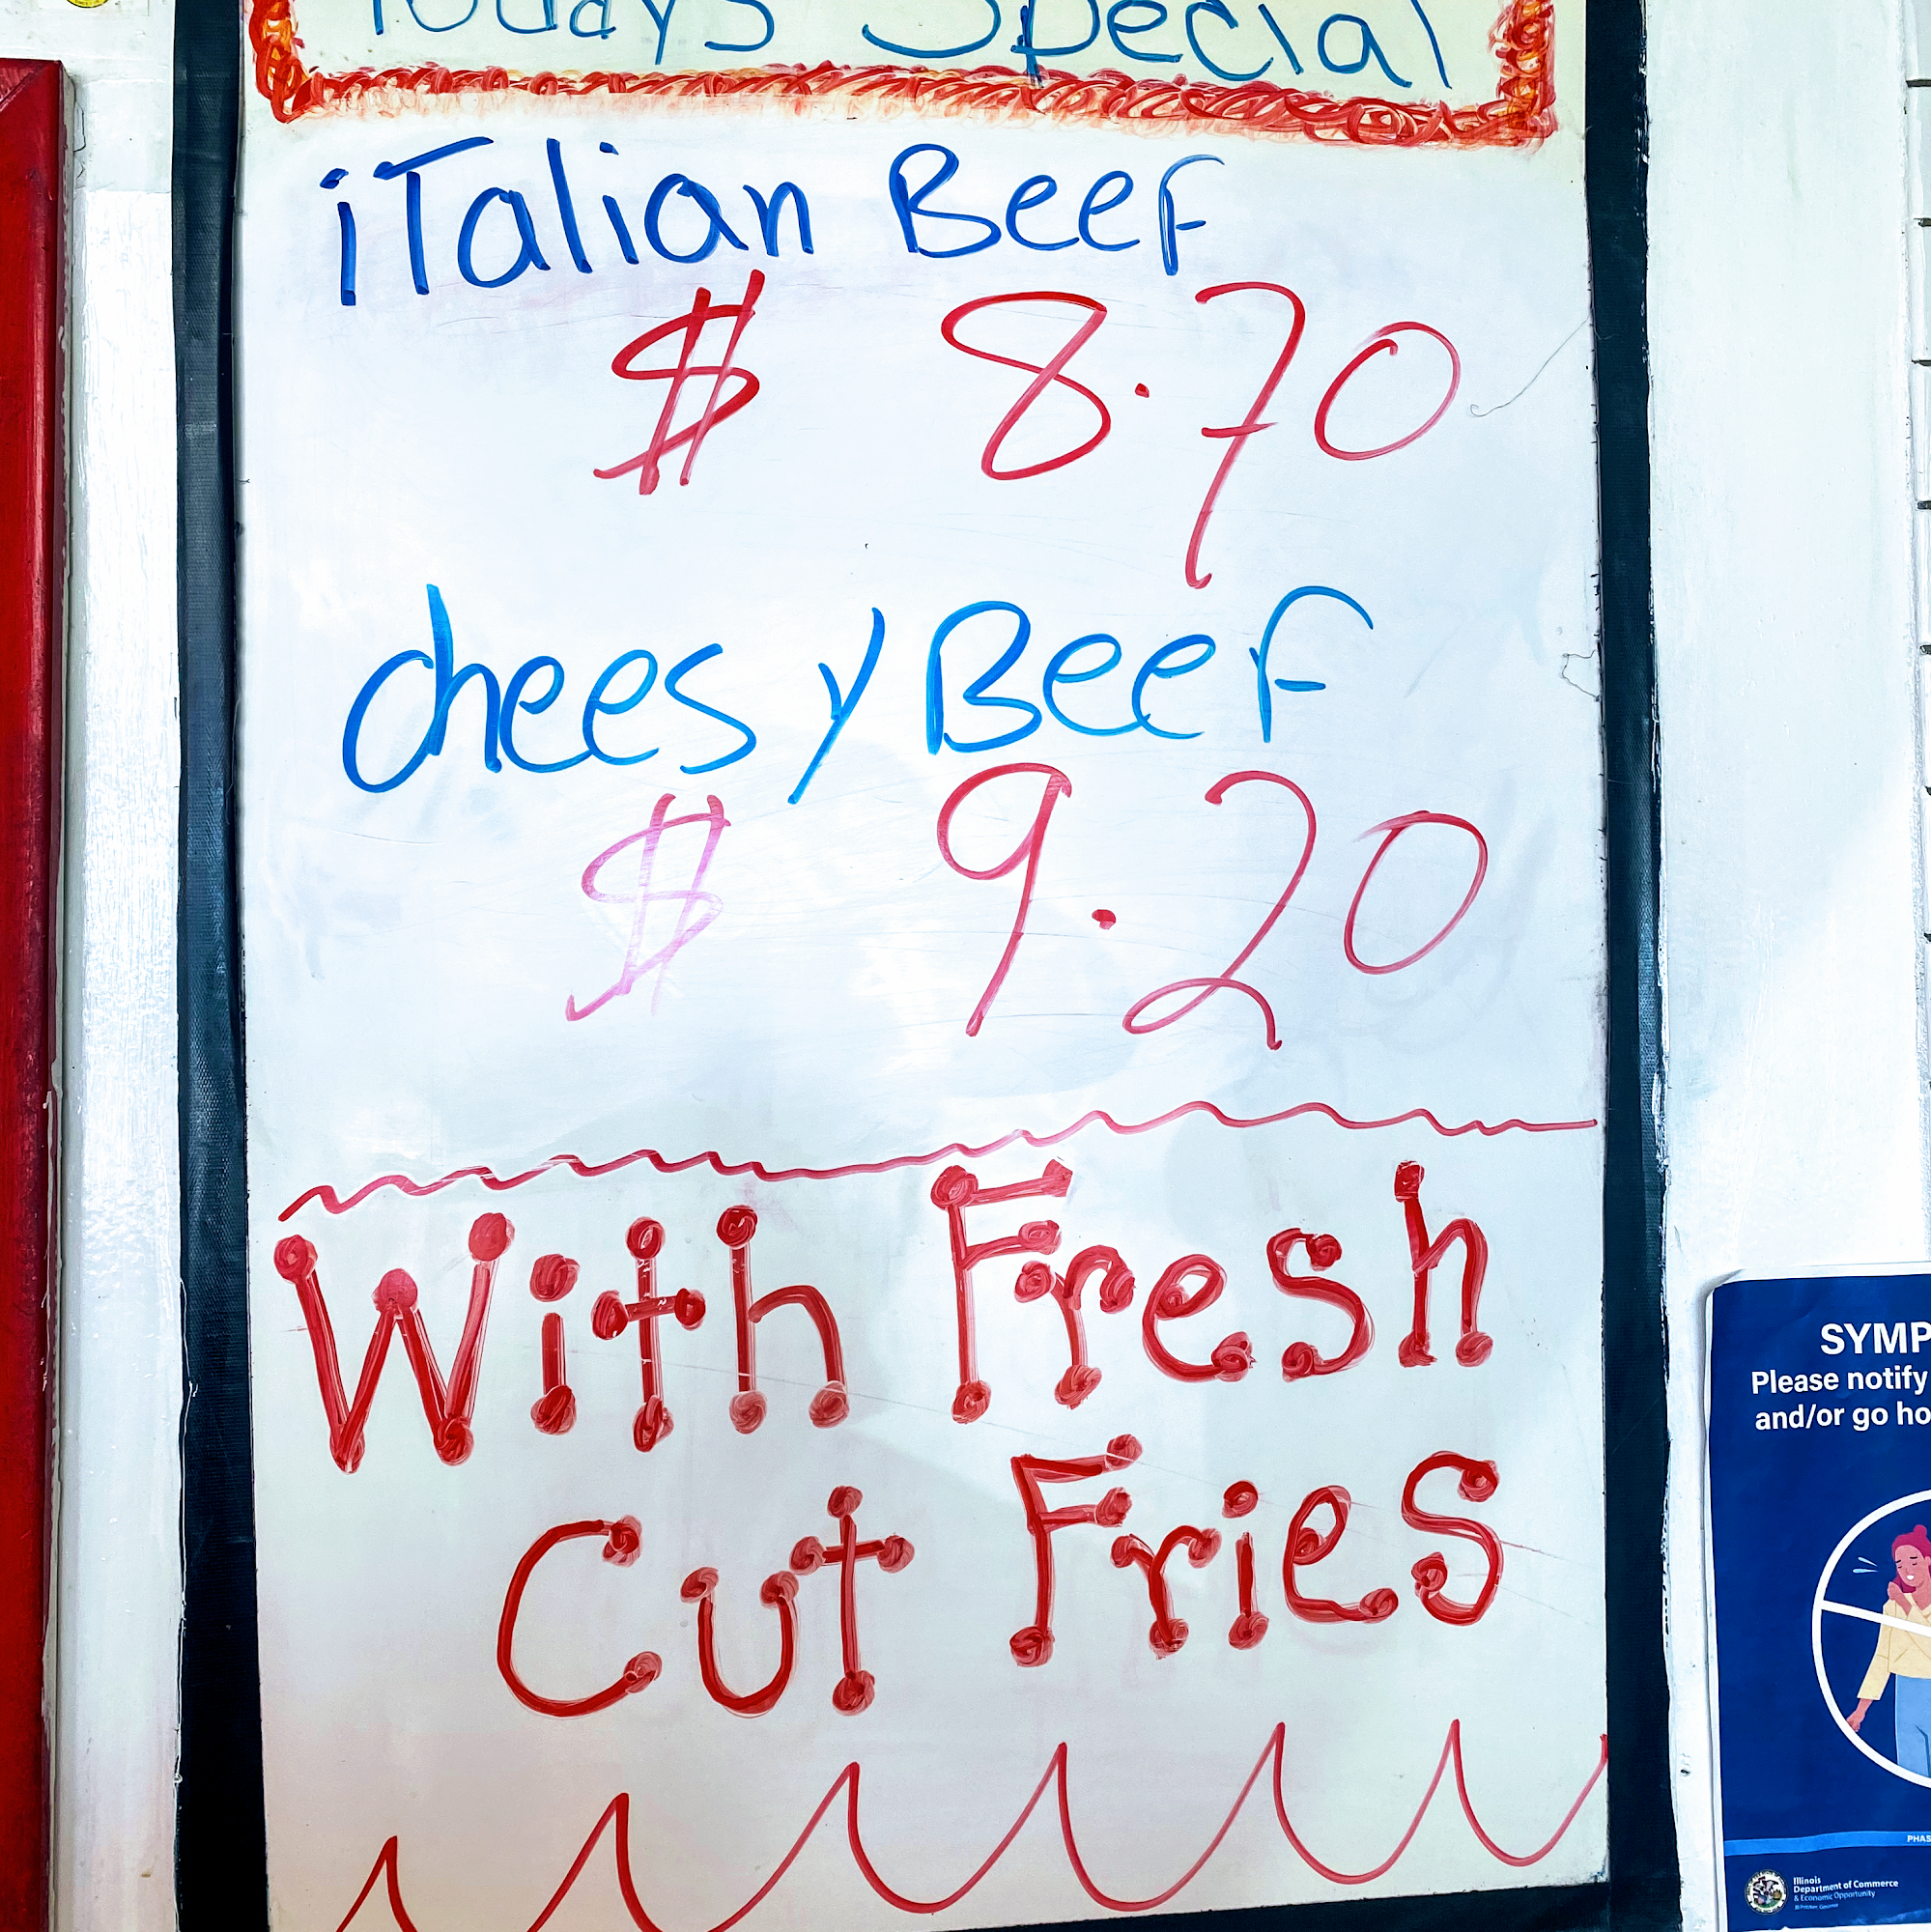 Todays Special
iTalian Beef
$ 8.70
cheesy Beef
$ 9.20
With Fresh
Cut Fries
SYMP
Please notify
and/or go ho
PHAS
Illinois
Department of Commerce
& Economic Opportunity
JB Pritzker, Governor